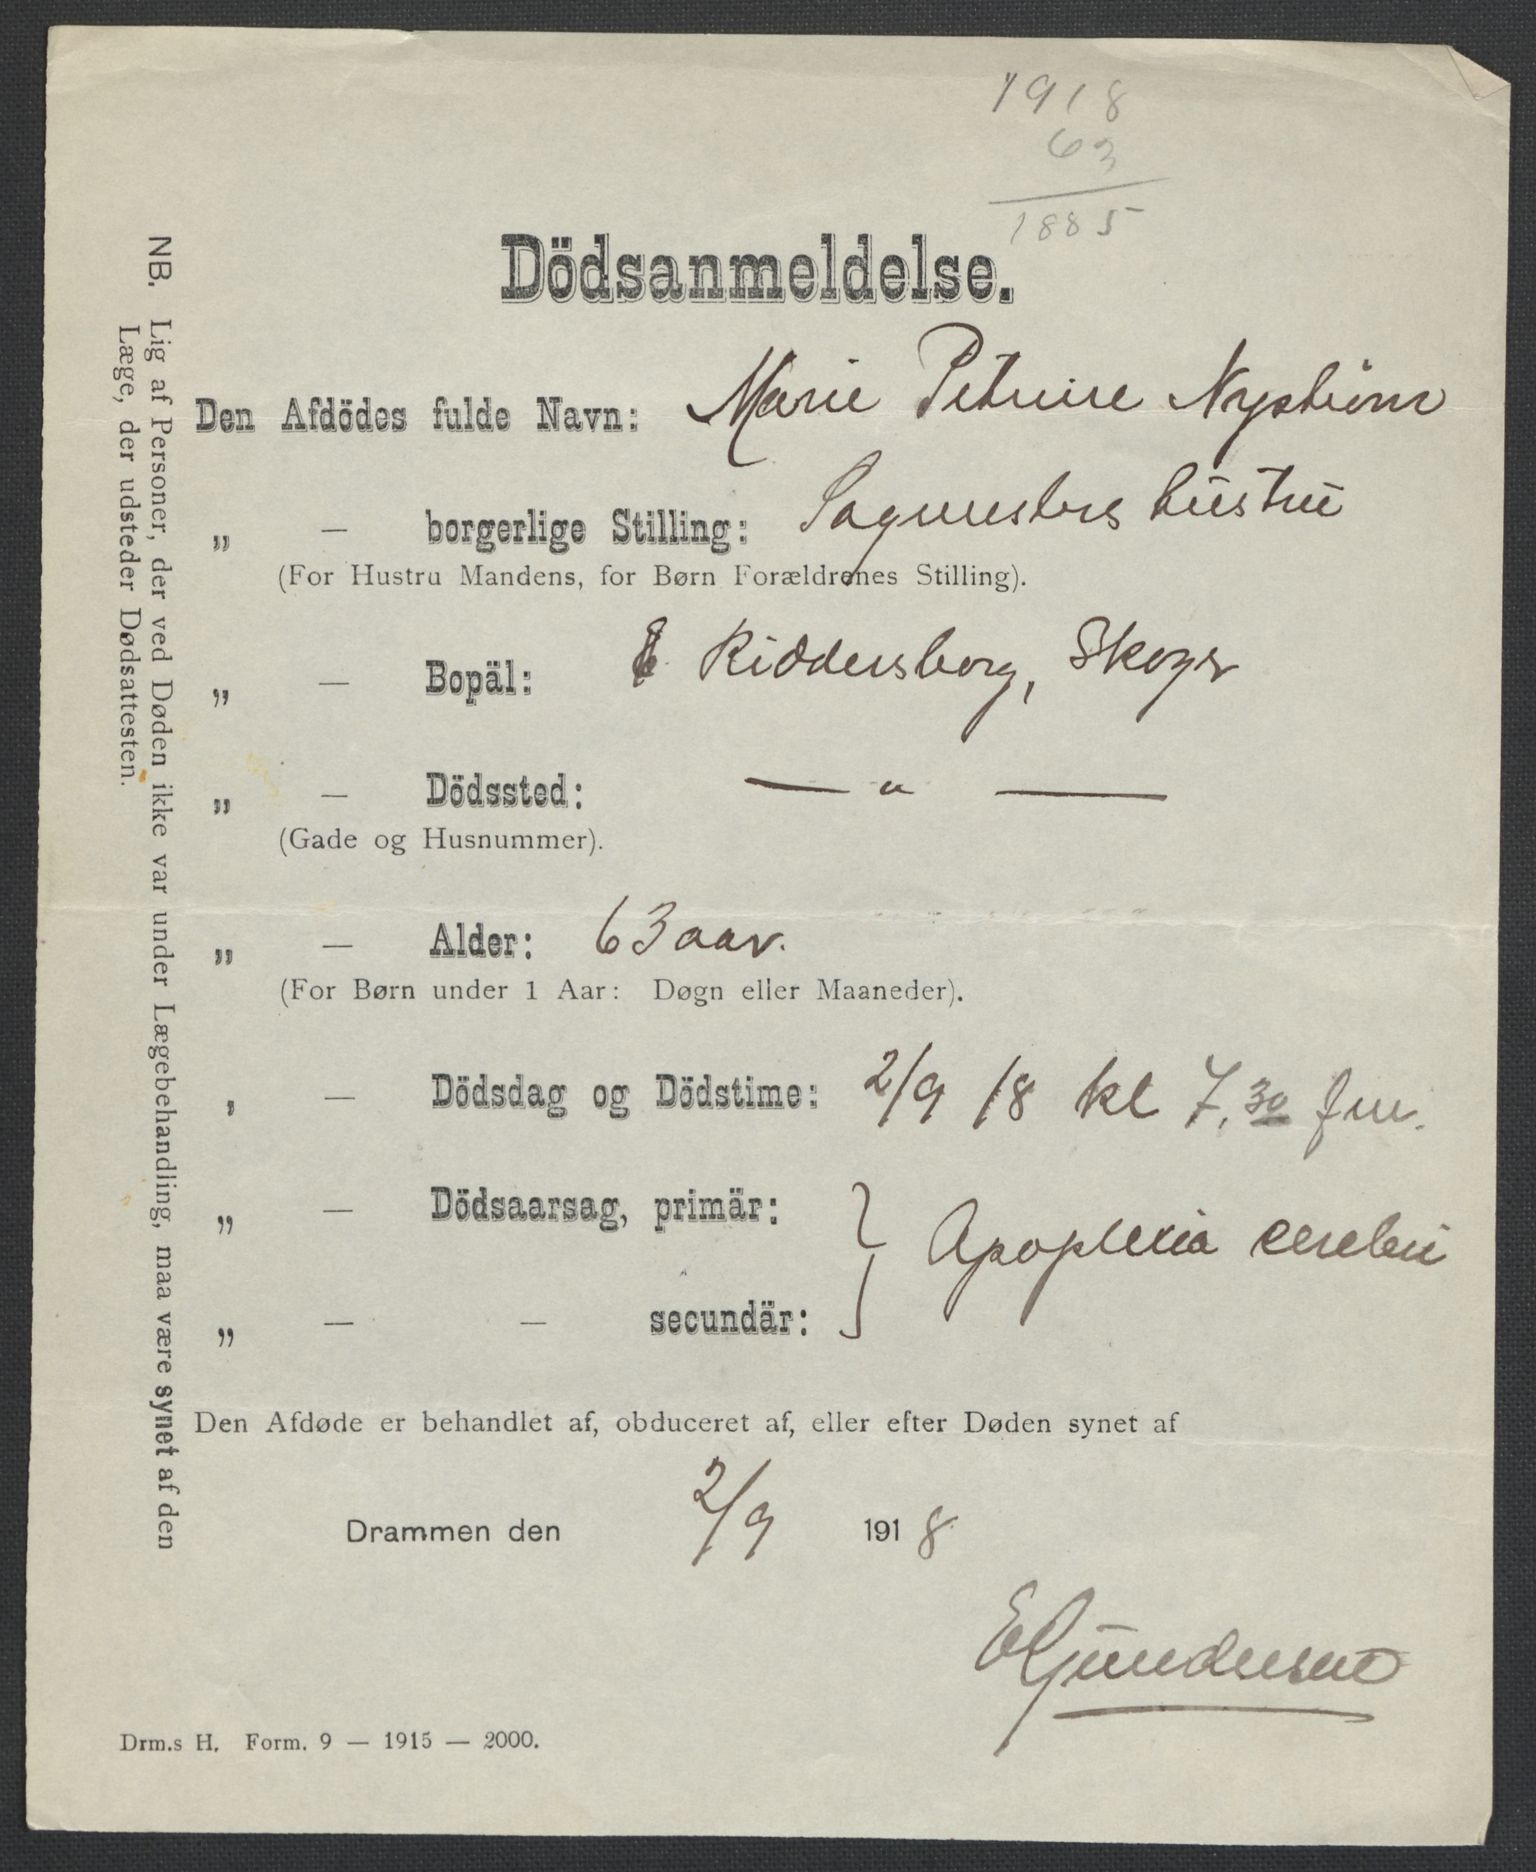 1918
63
1885
Dödsanmeldelse.
Den Afdödes fulde Navn: Marie Petrine Nyström
„ — borgerlige Stilling: Sagmesters hustru
(For Hustru Mandens, for Børn Forældrenes Stilling).
„ — Bopäl: Riddersborg, Skoger
„ — Dödssted: — " —
(Gade og Husnummer).
„ — Alder: 63 aar.
(For Børn under 1 Aar: Døgn eller Maaneder).
, — Dödsdag og Dödstime: 2/9 18 kl 7,30 fm.
„ — Dödsaarsag, primär: } Apoplexia cerebri
„ — — secundär:
Den Afdøde er behandlet af, obduceret af, eller efter Døden synet af
Drammen den 2/9 1918
E Gundersen
Drm.s H. Form. 9 — 1915 — 2000.
NB. Lig af Personer, der ved Døden ikke var under Lægebehandling, maa være synet af den
Læge, der udsteder Dødsattesten.